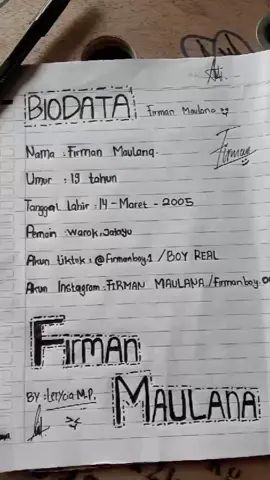 BIODATA Firman Maulana
Firman
Nama : Firman Maulana.
Umur : 19 tahun
Tanggal Lahir : 14 - Maret - 2005
Pemain : Warok, Jatayu
Akun tiktok : @firmanboy.1 / BOY REAL
Akun Instagram : FIRMAN MAULANA./firmanboy.
FIRMAN
BY : Lerycia M.P.
MAULANA